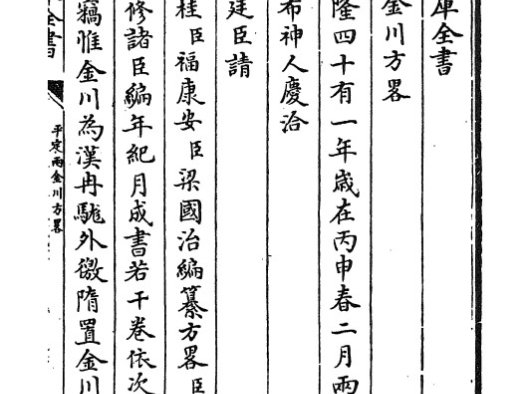 庫全書
金川方畧
隆四十有一年歲在丙申春二月兩
布神人慶洽
廷臣請
桂臣福康安臣梁國治編纂方畧臣
修諸臣編年紀月成書若干卷依次
竊惟金川為漢冉駹外徼隋置金川
全書
平定兩金川方畧